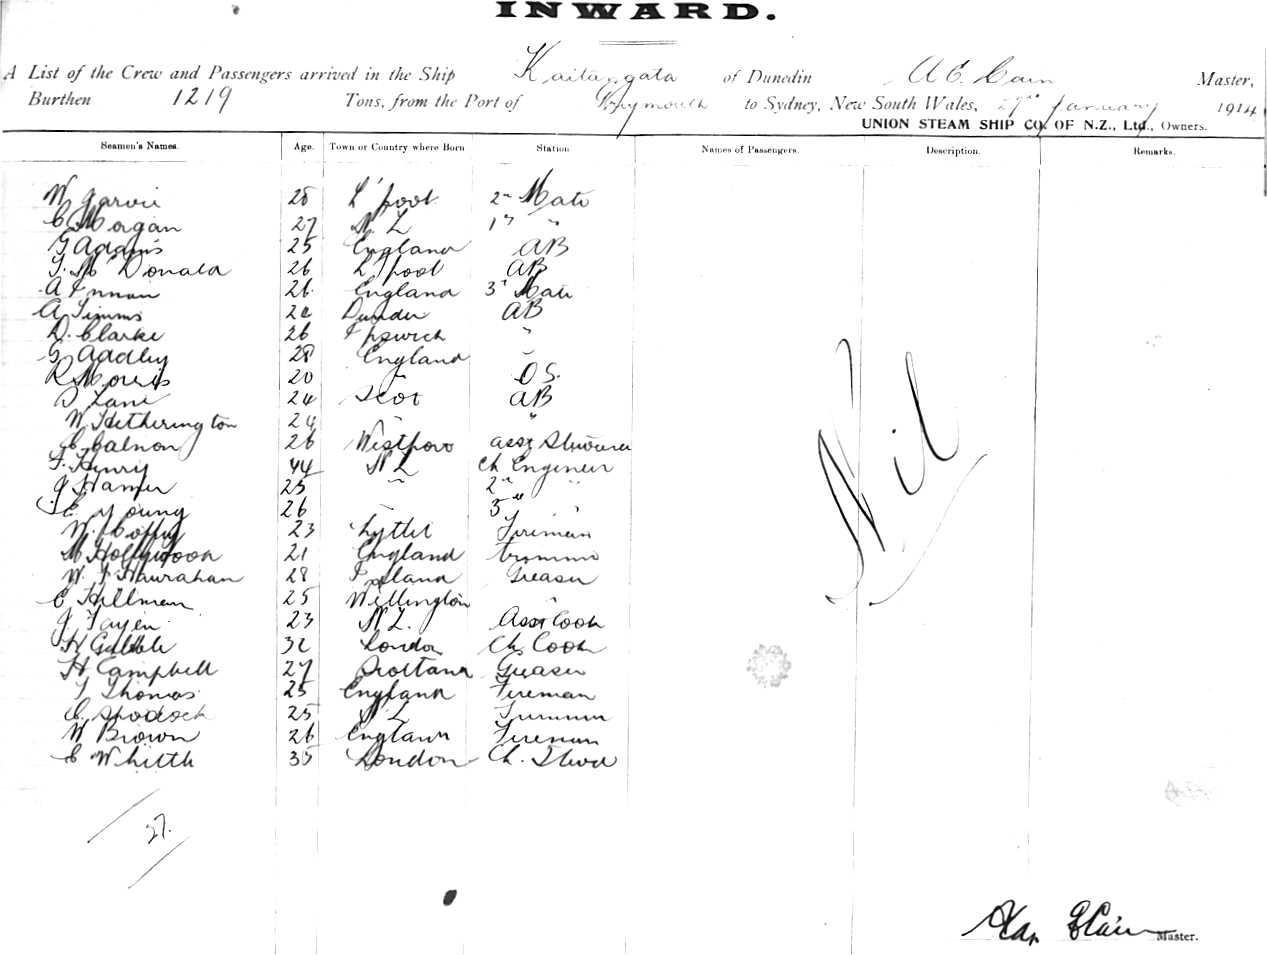 INWARD.
A List of the Crew and Passengers arrived in the Ship Kaitangata of Dunedin A E. Cain Master,
Burthen 1219 Tons, from the Port of Greymouth to Sydney, New South Wales, 29th January 1914
UNION STEAM SHIP CO. OF N.Z., Ltd., Owners.
Seamen's Names. Age. Town or Country where Born Station Names of Passengers. Description. Remarks.
W Garvie 28 L'pool 2nd Mate
C Morgan 27 N.Z 1st "
G Adams 25 England AB
T. McDonald 26 L'pool AB
A 26 England 3rd Mate
A Timms AB
D. Clarke 26 Ipswich "
G Aadley 28 England "
R Morris 20 " O S.
Lane 24 Scot AB
W Hetherington 24 " "
C Calnon 26 Westport asst Steward
F. Henry 44 N Z Ch Engineer
J Hamer 25 " 2nd "
C Young 26 " 3rd "
W. Coffey 23 Lyttel Fireman
M Hollywood 21 England trimmer
W. J Hanrahan 28 Ireland Greaser
C Hillman 25 Wellington "
J Fayen 23 N Z. Asst Cook
H Gribble 32 London Ch. Cook
H Campbell 27 Scotland Greaser
T Thomas 25 England Fireman
C. 25 N Z Trimmer
W Brown 26 England Fireman
E Whittle 35 London Ch. Stewd
Nil
27.
Alex E Cain Master.